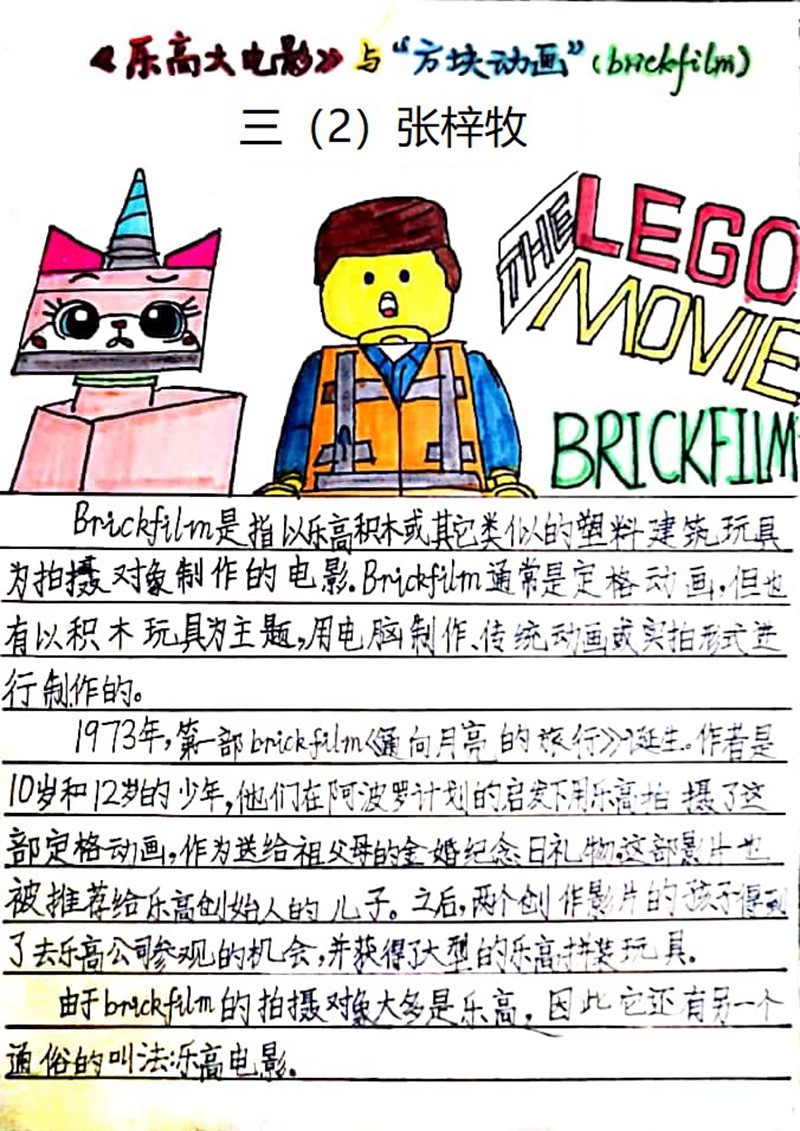 《乐高大电影》与“方块动画”(brickfilm)
三（2）张梓牧
THE LEGO
MOVIE
BRICKFILM
Brickfilm是指以乐高积木或其它类似的塑料建筑玩具
为拍摄对象制作的电影.Brickfilm通常是定格动画,但也
有以积木玩具为主题,用电脑制作、传统动画或实拍形式进
行制作的。
1973年,第一部brickfilm《通向月亮的旅行》诞生。作者是
10岁和12岁的少年,他们在阿波罗计划的启发下用乐高拍摄了这
部定格动画,作为送给祖父母的金婚纪念日礼物,这部影片也
被推荐给乐高创始人的儿子。之后,两个创作影片的孩子得到
了去乐高公司参观的机会,并获得了大型的乐高拼装玩具.
由于brickfilm的拍摄对象大多是乐高,因此它还有另一个
通俗的叫法:乐高电影.